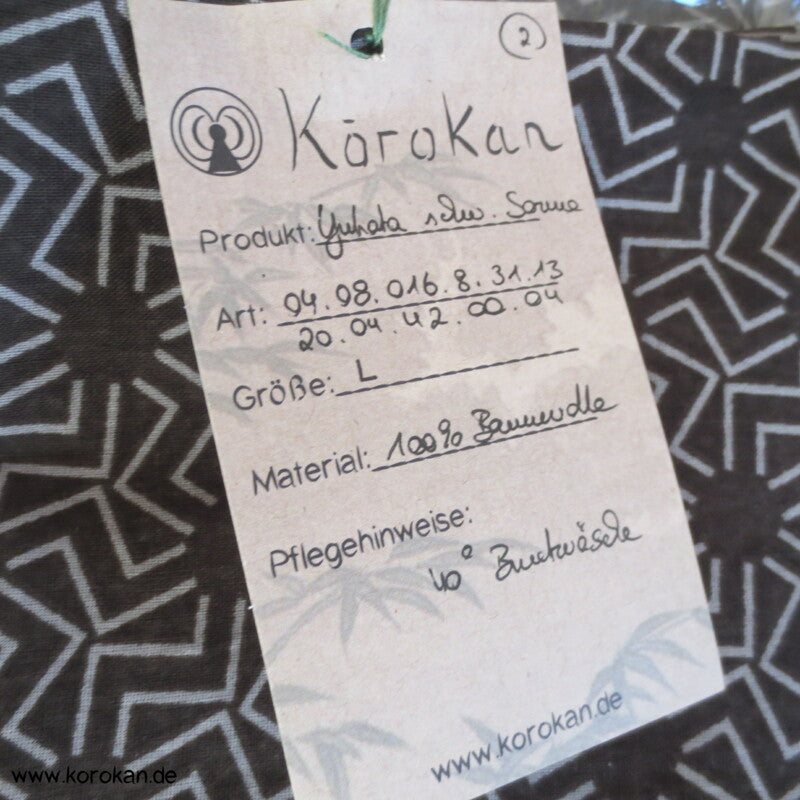 2
Kōrokan
Produkt: Yukata schw. Sonne
Art: 04.08.016.8.31.13
20.04.42.00.04
Größe: L
Material: 100% Baumwolle
Pflegehinweise:
40° Buntwäsche
www.korokan.de
www.korokan.de